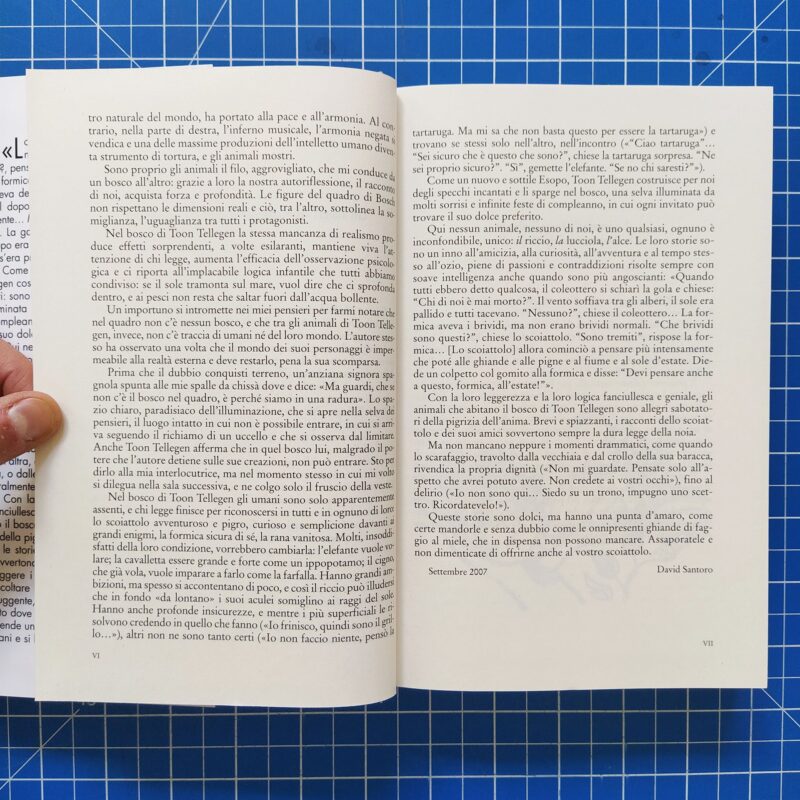 «L
?, pens
formic
eva de
l dopo
ente...
. La go
po era
s'era p
Come
gen cos
ri: sono
minata
mplean
suo dol
altra,
o, o dalle
ralmente
Con la
nciulles
o il bosco
della
le storie
overtono
ggere i
coltare
uggente,
to dove
ende un
ani e si l
tro naturale del mondo, ha portato alla pace e all'armonia. Al con-
trario, nella parte di destra, l'inferno musicale, l'armonia negata si
vendica e una delle massime produzioni dell'intelletto umano diven-
ta strumento di tortura, e gli animali mostri.
Sono proprio gli animali il filo, aggrovigliato, che mi conduce da
un bosco all'altro: grazie a loro la nostra autoriflessione, il racconto
di noi, acquista forza e profondità. Le figure del quadro di Bosch
non rispettano le dimensioni reali e ciò, tra l'altro, sottolinea la so-
miglianza, l'uguaglianza tra tutti i protagonisti.
Nel bosco di Toon Tellegen la stessa mancanza di realismo pro-
duce effetti sorprendenti, a volte esilaranti, mantiene viva l'at-
tenzione di chi legge, aumenta l'efficacia dell'osservazione psicolo-
gica e ci riporta all'implacabile logica infantile che tutti abbiamo
condiviso: se il sole tramonta sul mare, vuol dire che ci sprofonda
dentro, e ai pesci non resta che saltar fuori dall'acqua bollente.
Un importuno si intromette nei miei pensieri per farmi notare che
nel quadro non c'è nessun bosco, e che tra gli animali di Toon Telle-
gen, invece, non c'è traccia di umani né del loro mondo. L'autore stes-
so ha osservato una volta che il mondo dei suoi personaggi è imper-
meabile alla realtà esterna e deve restarlo, pena la sua scomparsa.
Prima che il dubbio conquisti terreno, un'anziana signora spa-
gnola spunta alle mie spalle da chissà dove e dice: «Ma guardi, che se
non c'è il bosco nel quadro, è perché siamo in una radura». Lo spa-
zio chiaro, paradisiaco dell'illuminazione, che si apre nella selva dei
pensieri, il luogo intatto in cui non è possibile entrare, in cui si arri-
va seguendo il richiamo di un uccello e che si osserva dal limitare.
Anche Toon Tellegen afferma che in quel bosco lui, malgrado il po-
tere che l'autore detiene sulle sue creazioni, non può entrare. Sto per
dirlo alla mia interlocutrice, ma nel momento stesso in cui mi volto
si dilegua nella sala successiva, e ne colgo solo il fruscio della veste.
Nel bosco di Toon Tellegen gli umani sono solo apparentemente
assenti, e chi legge finisce per riconoscersi in tutti e in ognuno di loro:
lo scoiattolo avventuroso e pigro, curioso e semplicione davanti ai
grandi enigmi, la formica sicura di sé, la rana vanitosa. Molti, insoddi-
sfatti della loro condizione, vorrebbero cambiarla: l'elefante vuole vo-
lare; la cavalletta essere grande e forte come un ippopotamo; il cigno,
che già vola, vuole imparare a farlo come la farfalla. Hanno grandi am-
bizioni, ma spesso si accontentano di poco, e così il riccio può illudersi
che in fondo «da lontano» i suoi aculei somiglino ai raggi del sole.
Hanno anche profonde insicurezze, e mentre i più superficiali le ri-
solvono credendo in quello che fanno («Io frinisco, quindi sono il gril-
lo...»), altri non ne sono tanto certi («Io non faccio niente, pensò la
VI
tartaruga. Ma mi sa che non basta questo per essere la tartaruga») e
trovano se stessi solo nell'altro, nell'incontro («“Ciao tartaruga”...
“Sei sicuro che è questo che sono?”, chiese la tartaruga sorpresa. “Ne
sei proprio sicuro?”. “Sì”, gemette l'elefante. “Se no chi saresti?”»).
Come un nuovo e sottile Esopo, Toon Tellegen costruisce per noi
degli specchi incantati e li sparge nel bosco, una selva illuminata da
molti sorrisi e infinite feste di compleanno, in cui ogni invitato può
trovare il suo dolce preferito.
Qui nessun animale, nessuno di noi, è uno qualsiasi, ognuno è
inconfondibile, unico: il riccio, la lucciola, l'alce. Le loro storie so-
no un inno all'amicizia, alla curiosità, all'avventura e al tempo stes-
so all'ozio, piene di passioni e contraddizioni risolte sempre con
soave intelligenza anche quando sono più angoscianti: «Quando
tutti ebbero detto qualcosa, il coleottero si schiarì la gola e chiese:
“Chi di noi è mai morto?”. Il vento soffiava tra gli alberi, il sole era
pallido e tutti tacevano. “Nessuno?”, chiese il coleottero... La for-
mica aveva i brividi, ma non erano brividi normali. “Che brividi
sono questi?”, chiese lo scoiattolo. “Sono tremiti”, rispose la formi-
ca... [Lo scoiattolo] allora cominciò a pensare più intensamente
che poté alle ghiande e alle pigne e al fiume e al sole d'estate. Die-
de un colpetto col gomito alla formica e disse: “Devi pensare anche
a questo, formica, all'estate!”».
Con la loro leggerezza e la loro logica fanciullesca e geniale, gli
animali che abitano il bosco di Toon Tellegen sono allegri sabotato-
ri della pigrizia dell'anima. Brevi e spiazzanti, i racconti dello scoiat-
tolo e dei suoi amici sovvertono sempre la dura legge della noia.
Ma non mancano neppure i momenti drammatici, come quando
lo scarafaggio, travolto dalla vecchiaia e dal crollo della sua baracca,
rivendica la propria dignità («Non mi guardate. Pensate solo all'a-
spetto che avrei potuto avere. Non credete ai vostri occhi»), fino al
delirio («Io non sono qui... Siedo su un trono, impugno uno scet-
tro. Ricordatevelo!»).
Queste storie sono dolci, ma hanno una punta d'amaro, come
certe mandorle e senza dubbio come le onnipresenti ghiande di fag-
gio al miele, che in dispensa non possono mancare. Assaporatele e
non dimenticate di offrirne anche al vostro scoiattolo.
Settembre 2007 David Santoro
VII